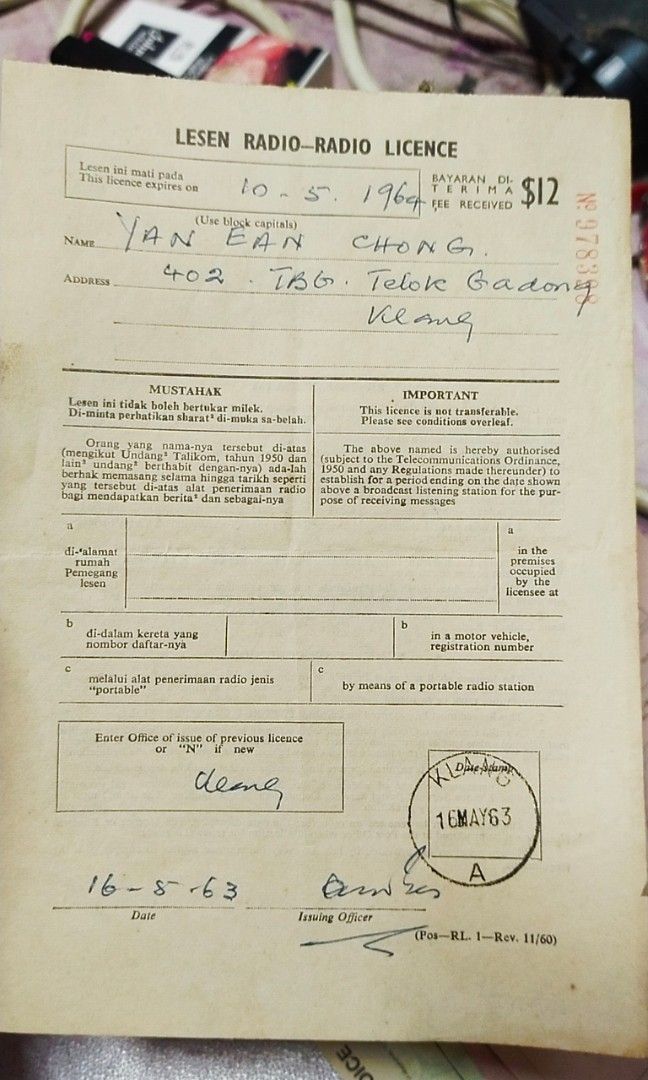 LESEN RADIO—RADIO LICENCE
Lesen ini mati pada
This licence expires on
10 - 5. 1964
BAYARAN DI-
TERIMA
FEE RECEIVED
$12
Nº
(Use block capitals)
NAME YAN EAN CHONG.
ADDRESS 402. TBG. Telok Gadong
Klang
MUSTAHAK
Lesen ini tidak boleh bertukar milek.
Di-minta perhatikan sharat² di-muka sa-belah.
IMPORTANT
This licence is not transferable.
Please see conditions overleaf.
Orang yang nama-nya tersebut di-atas
(mengikut Undang² Talikom, tahun 1950 dan
lain² undang² berthabit dengan-nya) ada-lah
berhak memasang selama hingga tarikh seperti
yang tersebut di-atas alat penerimaan radio
bagi mendapatkan berita² dan sebagai-nya
The above named is hereby authorised
(subject to the Telecommunications Ordinance,
1950 and any Regulations made thereunder) to
establish for a period ending on the date shown
above a broadcast listening station for the pur-
pose of receiving messages
a
di-'alamat
rumah
Pemegang
lesen
a
in the
premises
occupied
by the
licensee at
b
di-dalam kereta yang
nombor daftar-nya
b
in a motor vehicle,
registration number
c
melalui alat penerimaan radio jenis
"portable"
c
by means of a portable radio station
Enter Office of issue of previous licence
or "N" if new
Klang
Date Stamp
KLANG
16MAY63
A
16-5-63
Date
Issuing Officer
(Pos—RL. 1—Rev. 11/60)